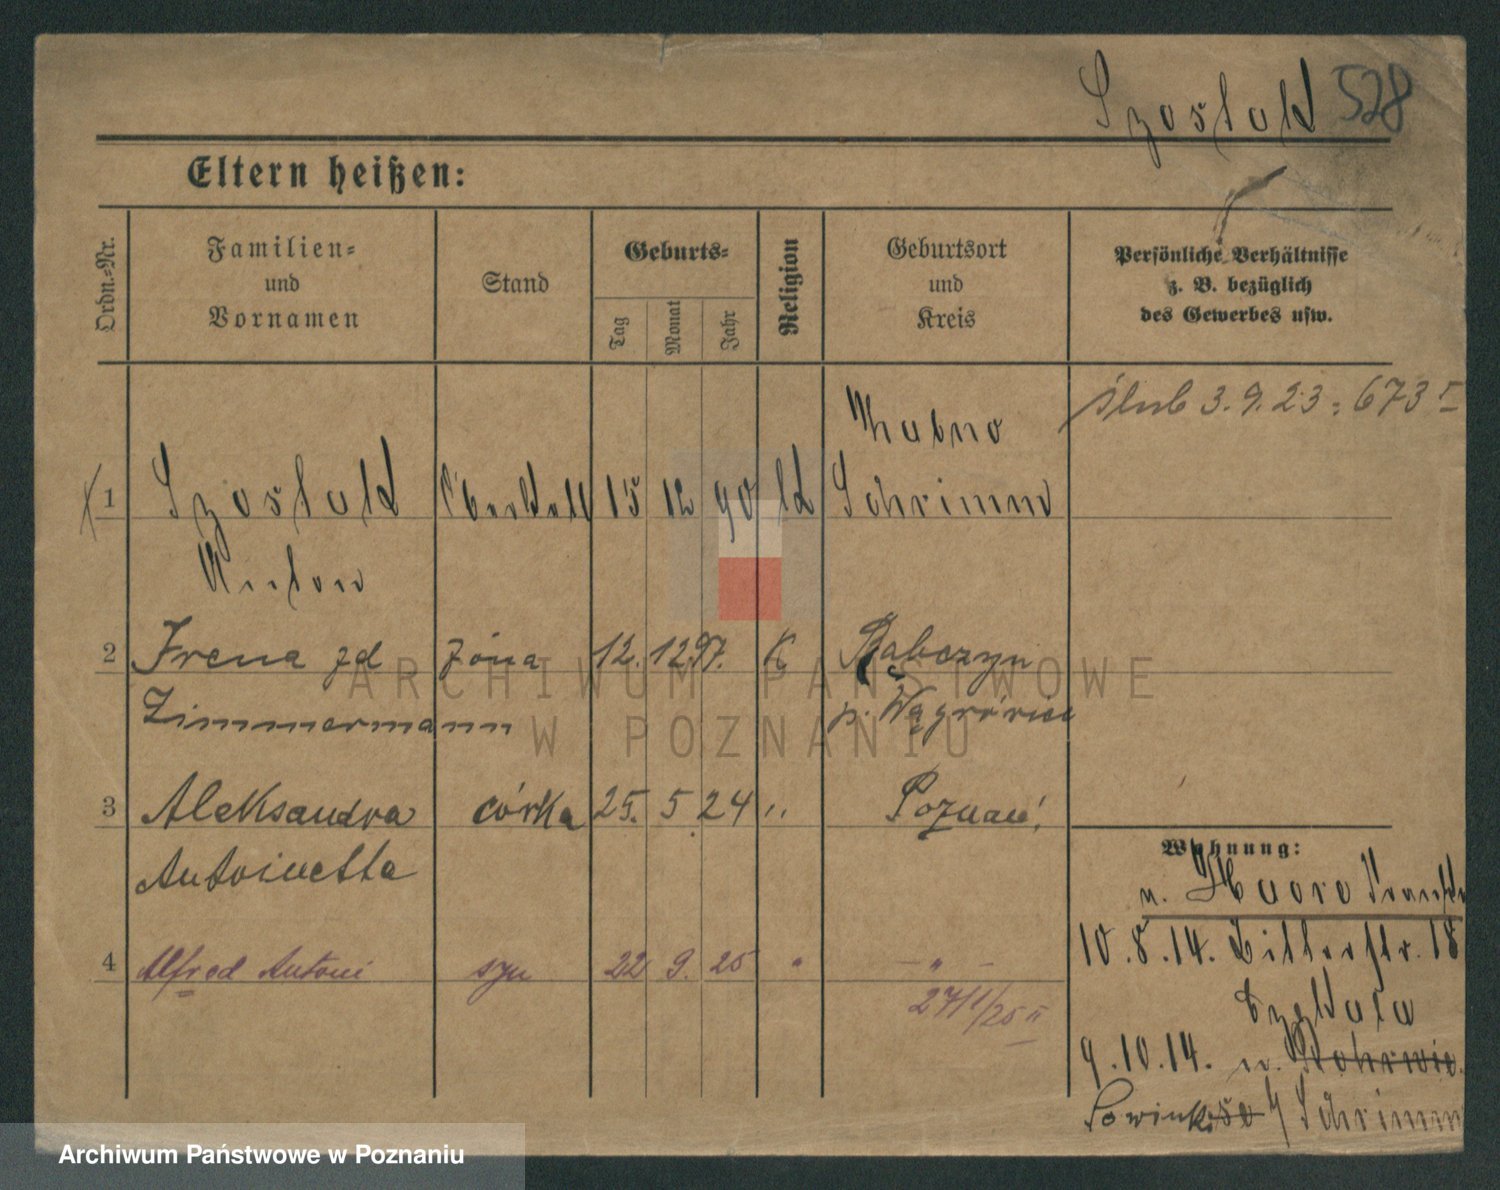 Szostak 528
Eltern heißen:
Ordn.-Nr.
Familien-
und
Vornamen
Stand
Geburts-
Tag
Monat
Jahr
Religion
Geburtsort
und
Kreis
Persönliche Verhältnisse
z. B. bezüglich
des Gewerbes usw.
ślub 3.9.23 : 673 I
1 Szostak 15 12 90 k Schrimm
Anton
2 Irena zd żona 12. 12 97. K Rąbczyn
Zimmermann p. Wągrówiec
3 Aleksandra córka 25. 5 24 " Poznań
Antoinetta
4 Alfred Antoni syn 22 9. 25 " - " -
Wohnung:
n.
10.8.14. Bitterstr. 18
9.10.14. n.
Schrimm
ARCHIWUM PAŃSTWOWE
W POZNANIU
Archiwum Państwowe w Poznaniu